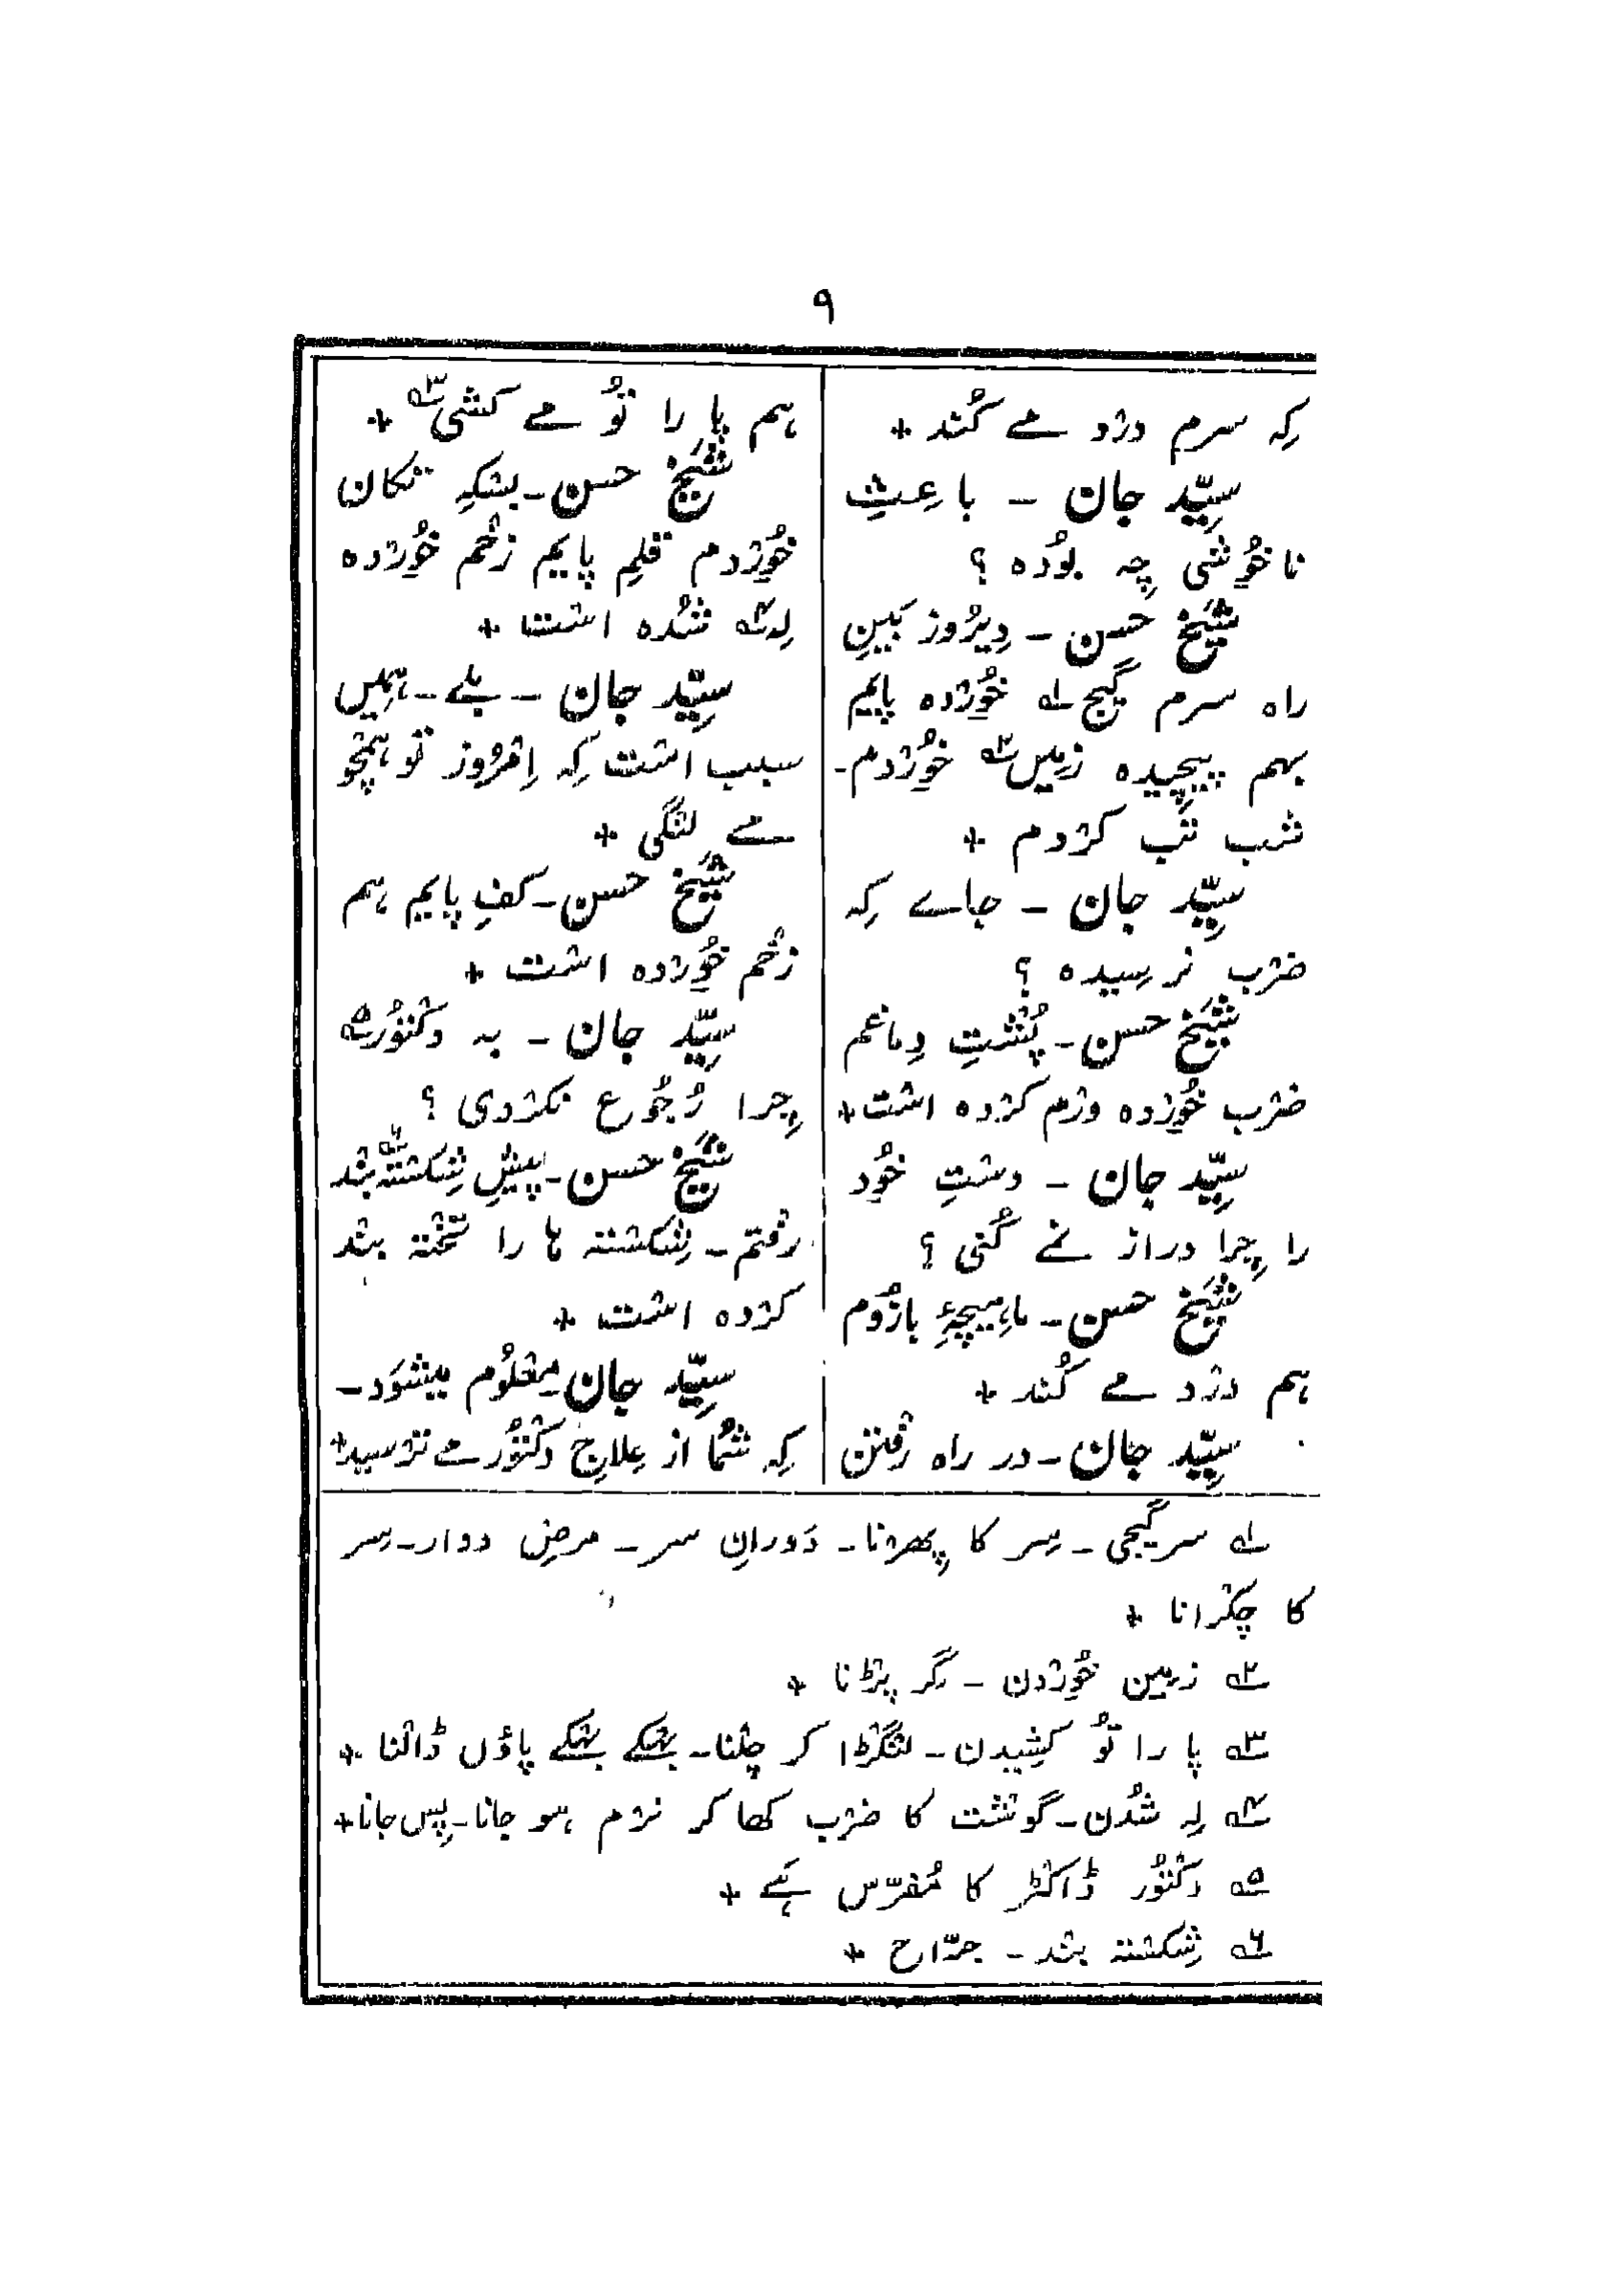 ۹
کِہ سرم دژد مے کُند +
سیِّد جان - باعِثِ
نا خُوشی چِہ بُودہ ؟
شَیخ حسن - دِیرُوز بَینِ
راہ سرم گیج لہ خُوژدہ پایم
بہم پیچیدہ زمِیں ۲ہ خُوژدم -
شب تَب کژدم +
سیِّد جان - جاے کِہ
ضژب نرسِیدہ ؟
شَیخ حسن - پُشتِ دِماغم
ضژب خُوژدہ وژم کژدہ است +
سیِّد جان - دستِ خُود
را چِرا دراز نے کُنی ؟
شَیخ حسن - ماہیچۂ بازُوم
ہم دژد مے کُند +
سیِّد جان - در راہ رفتن
ہم پا را تُو مے کشی ۳ہ +
شَیخ حسن - بسکِہ تکان
خُوژدم قلمِ پایم زخم خُوژدہ
لِہ ۴ہ شُدہ است +
سیِّد جان - بلے - ہمِیں
سبب است کِہ اِمژُوز تو ہمچو
مے لنگی +
شَیخ حسن - کفِ پایم ہم
زخم خُوژدہ است +
سیِّد جان - بہ دکتُور ۵ہ
چِرا رُجُوع نکژدی ؟
شَیخ حسن - پیشِ شِکستہ ۶ہ بند
رفتم - شِکستہ ہا را تختہ بند
کژدہ است +
سیِّد جان - معلُوم میشوَد -
کِہ شُما از عِلاجِ دکتُور مے تژسید +
لہ سر گیجی - سِر کا پھِرنا - دَورانِ سر - مرضِ دوار - سِر
کا چکرانا +
۲ہ زمِین خُوژدن - گر پڑنا +
۳ہ پا را تُو کشِیدن - لنگڑا کر چلنا - بہکے بہکے پاؤں ڈالنا +
۴ہ لِہ شُدن - گوشت کا ضژب کھا کر نژم ہو جانا - پِس جانا +
۵ہ دکتُور ڈاکٹر کا مُفرّس ہَے +
۶ہ شِکستہ بند - جرّاح +